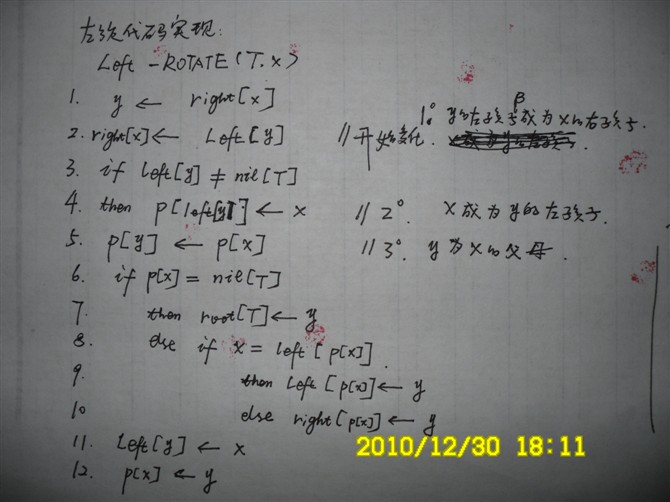 左旋代码实现:
Left-ROTATE(T.x)
1. y ← right[x]
2. right[x] ← Left[y] //开始变化. 1° y的左孩子β成为x的右孩子.
3. if left[y] ≠ nil[T]
4. then p[left[y]] ← x //2°. x成为y的左孩子.
5. p[y] ← p[x] //3°. y为x的父母.
6. if p[x] = nil[T]
7. then root[T] ← y
8. else if x = left[p[x]]
9. then left[p[x]] ← y
10 else right[p[x]] ← y
11. Left[y] ← x
12. p[x] ← y
2010/12/30 18:11